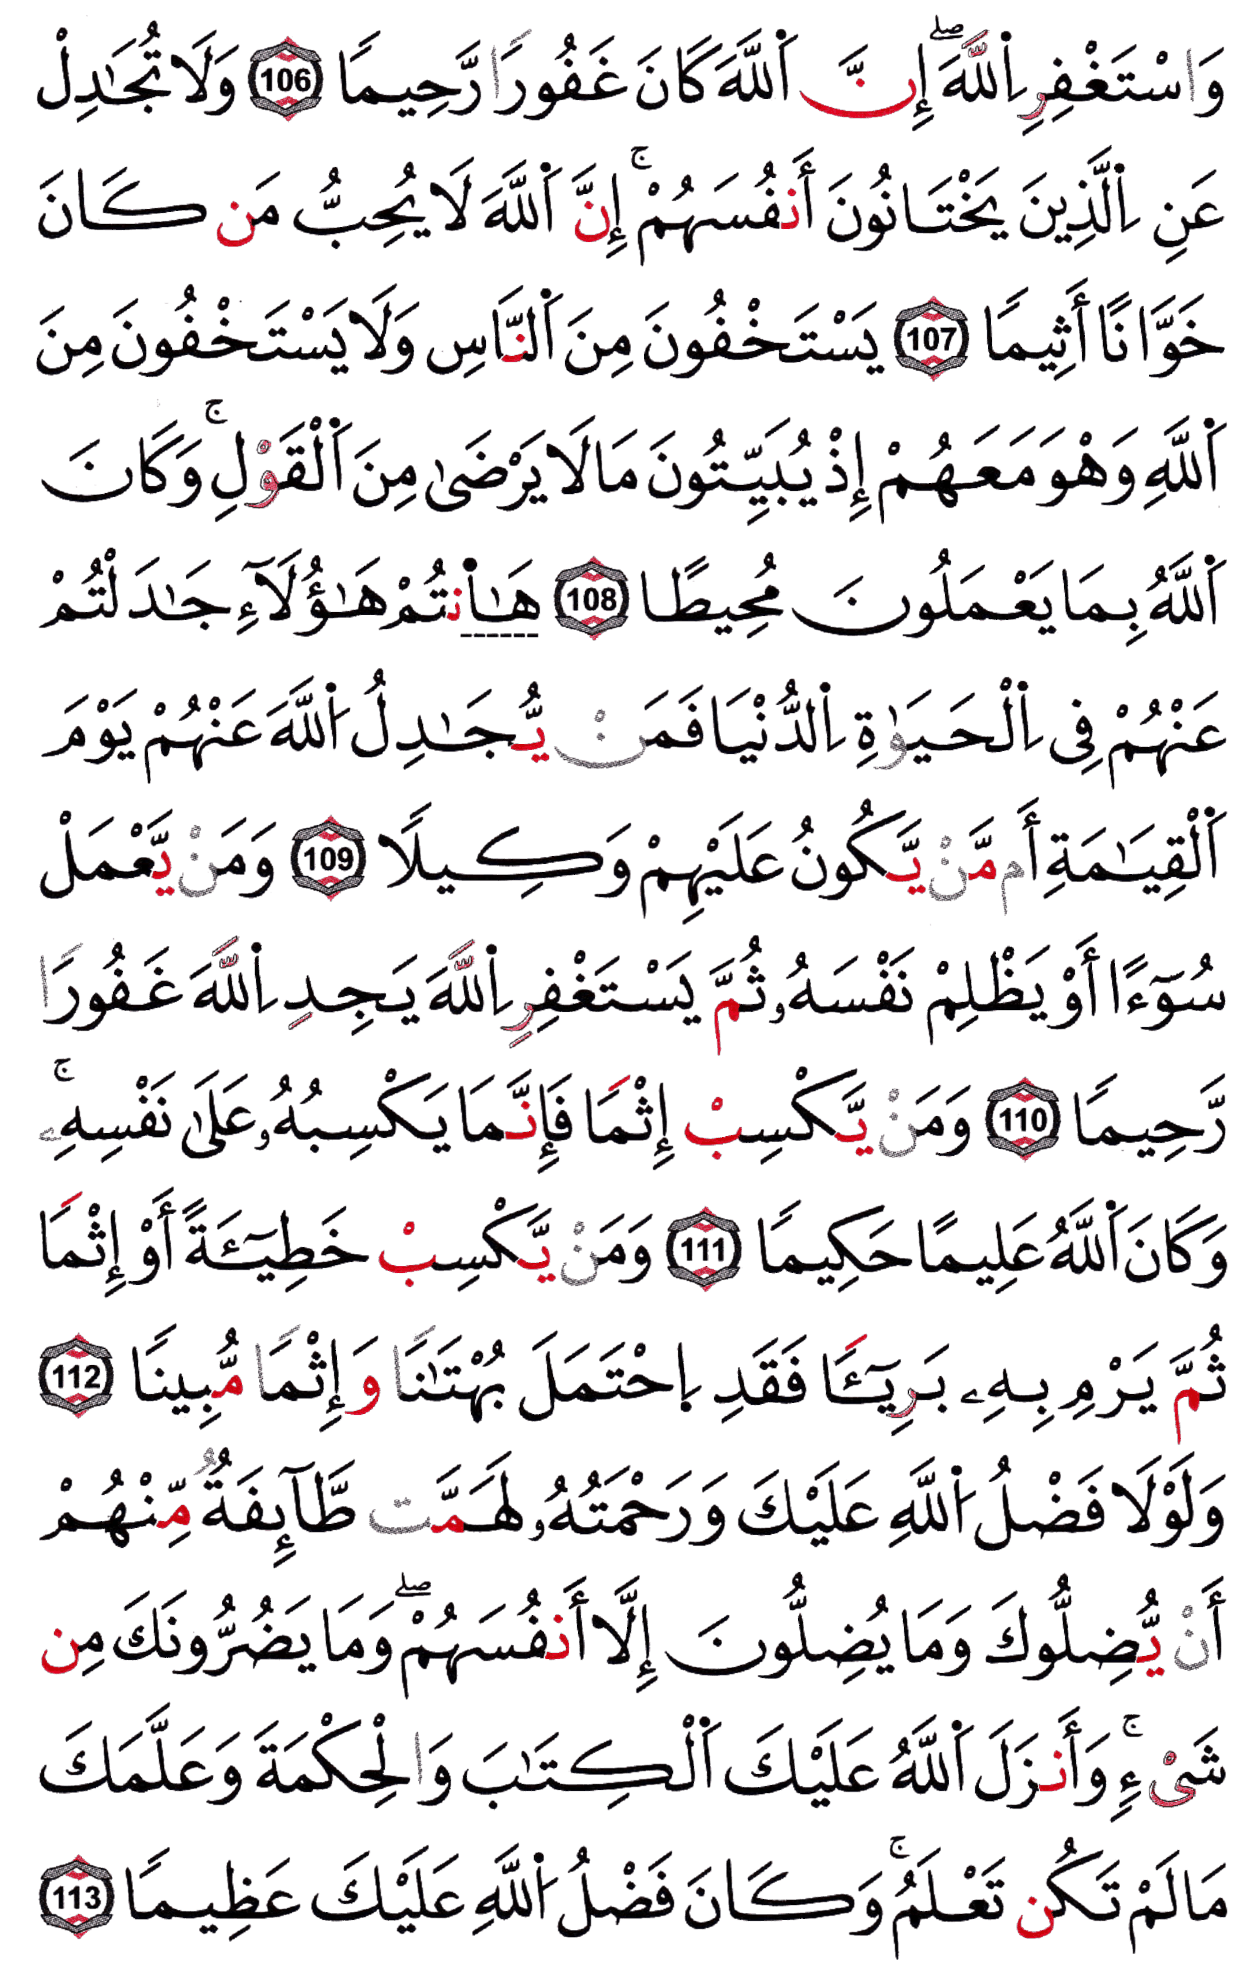 وَاسْتَغْفِرِ اِللَّهَ إِنَّ اَللَّهَ كَانَ غَفُورًا رَّحِيمًا 106 وَلَا تُجَٰدِلْ
عَنِ اِلَّذِينَ يَخْتَانُونَ أَنفُسَهُمْ إِنَّ اَللَّهَ لَا يُحِبُّ مَن كَانَ
خَوَّانًا أَثِيمًا 107 يَسْتَخْفُونَ مِنَ اَلنَّاسِ وَلَا يَسْتَخْفُونَ مِنَ
اَللَّهِ وَهْوَ مَعَهُمْ إِذْ يُبَيِّتُونَ مَا لَا يَرْضَىٰ مِنَ اَلْقَوْلِ وَكَانَ
اَللَّهُ بِمَا يَعْمَلُونَ مُحِيطًا 108 هَٰانتُمْ هَٰؤُلَآءِ جَٰدَلْتُمْ
عَنْهُمْ فِى اِلْحَيَوٰةِ اِلدُّنْيَا فَمَنْ يُّجَٰدِلُ اُللَّهَ عَنْهُمْ يَوْمَ
اَلْقِيَٰمَةِ أَم مَّنْ يَّكُونُ عَلَيْهِمْ وَكِيلًا 109 وَمَنْ يَّعْمَلْ
سُوٓءًا أَوْ يَظْلِمْ نَفْسَهُۥ ثُمَّ يَسْتَغْفِرِ اِللَّهَ يَجِدِ اِللَّهَ غَفُورًا
رَّحِيمًا 110 وَمَنْ يَّكْسِبْ إِثْمًا فَإِنَّمَا يَكْسِبُهُۥ عَلَىٰ نَفْسِهِۦ
وَكَانَ اَللَّهُ عَلِيمًا حَكِيمًا 111 وَمَنْ يَّكْسِبْ خَطِيٓـَٔةً أَوْ إِثْمًا
ثُمَّ يَرْمِ بِهِۦ بَرِيٓـًٔا فَقَدِ اِحْتَمَلَ بُهْتَٰنًا وَإِثْمًا مُّبِينًا 112
وَلَوْلَا فَضْلُ اُللَّهِ عَلَيْكَ وَرَحْمَتُهُۥ لَهَمَّت طَّآئِفَةٌ مِّنْهُمْ
أَنْ يُّضِلُّوكَ وَمَا يُضِلُّونَ إِلَّا أَنفُسَهُمْ وَمَا يَضُرُّونَكَ مِن
شَىْءٍ وَأَنزَلَ اَللَّهُ عَلَيْكَ اَلْكِتَٰبَ وَالْحِكْمَةَ وَعَلَّمَكَ
مَا لَمْ تَكُن تَعْلَمُ وَكَانَ فَضْلُ اُللَّهِ عَلَيْكَ عَظِيمًا 113